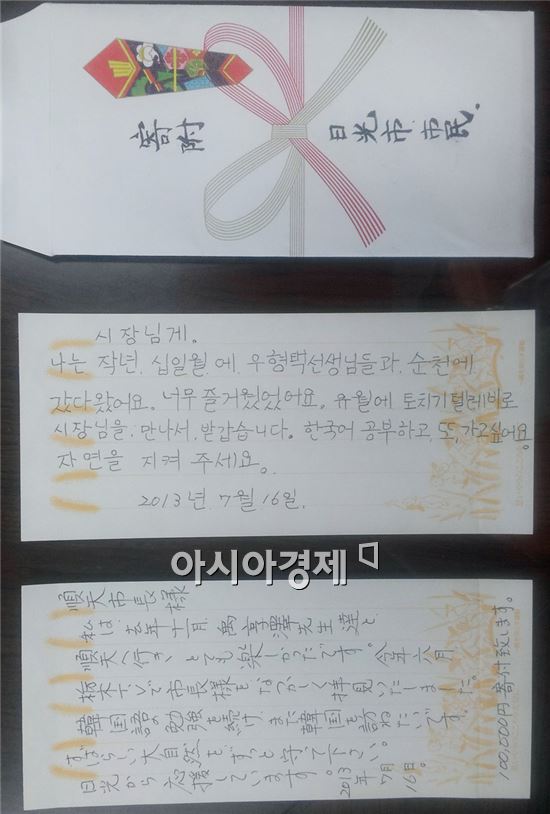 寄附
日光市 市民
시장님게.
나는 작년, 십일월 에 우형택선생님들과, 순천에
갔다왔어요. 너무 즐거웠었어요. 유월에 토치기텔레비로
시장님을, 만나서, 받갑습니다. 한국어 공부하고, 또, 가고싶어요.
자연을 지켜 주세요.
2013년 7월 16일.
아시아경제
順天市長様
私は、去年十一月、禹亨澤先生達と
順天へ行き、とても楽しかったです。今年六月
栃木テレビで市長様をなつかしく拝見いたしました。
韓国語の勉強を続け、また韓国を訪ねたいです。
すばらしい大自然をずっと守って下さい。
日光から応援しています。
2013年7月16日。
100,000円寄付致します。